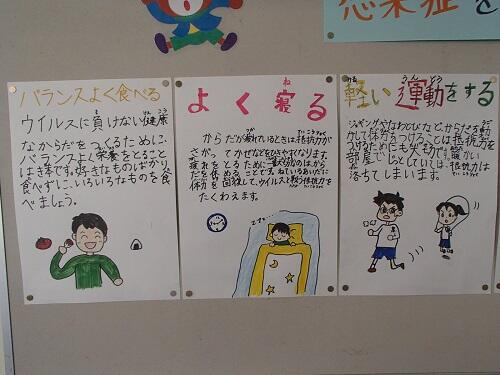 感染症を
バランスよく食べる
ウイルスに負けない健康
なからだをつくるために、
バランスよく栄養をとること
は基本です。好きなものばかり
食べずに、いろいろなものを食
べましょう。
よく寝る
からだが疲れているときは、抵抗力が
さがってかぜなどをひきやすくなります。
疲れをとるために一番効果的なのはから
だを休めることです。ねているあいだに
体力を回復して、ウイルスと戦う抵抗力を
たくわえます。
軽い運動をする
ジョギングやなわとびなど、からだを動
かして体力をつけることは、抵抗力を
つけるためにも必要です。暖かい
部屋でじっとしていては、抵抗力は
落ちてしまいます。